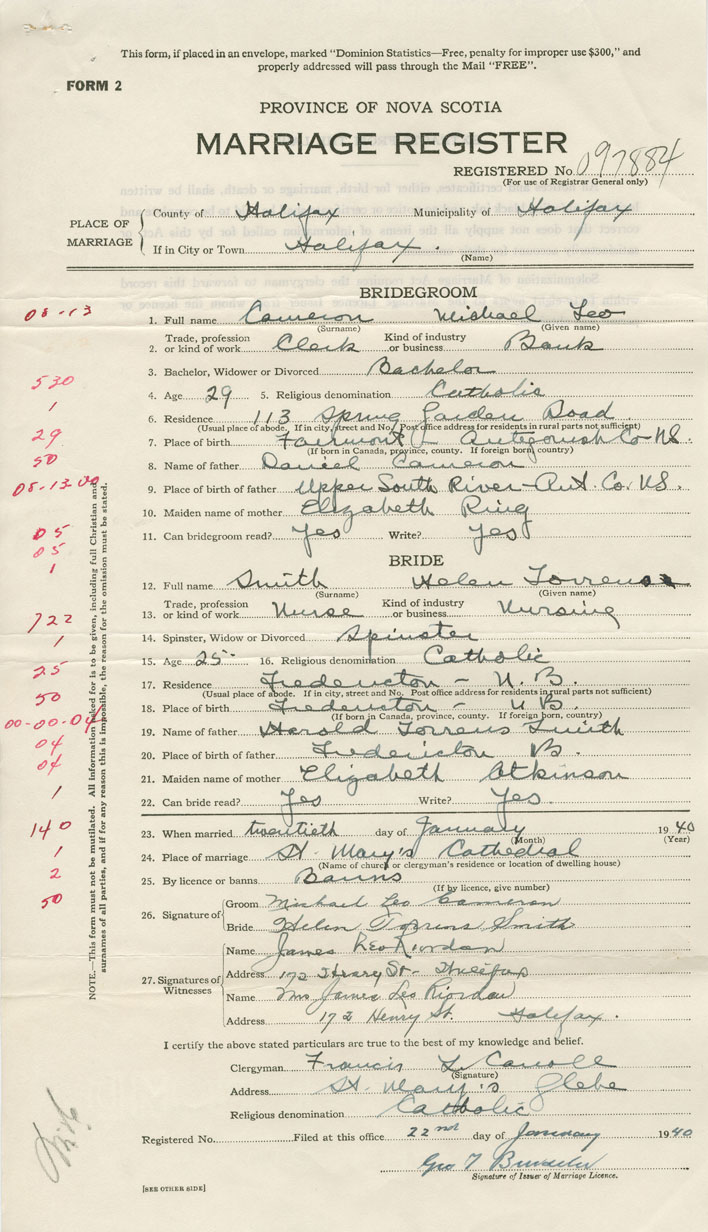 This form, if placed in an envelope, marked "Dominion Statistics—Free, penalty for improper use $300," and
properly addressed will pass through the Mail "FREE".
FORM 2
PROVINCE OF NOVA SCOTIA
MARRIAGE REGISTER
REGISTERED No. 097884
(For use of Registrar General only)
PLACE OF MARRIAGE
County of Halifax Municipality of Halifax
If in City or Town Halifax.
(Name)
BRIDEGROOM
08-13
1. Full name Cameron Michael Leo
(Surname) (Given name)
2. Trade, profession or kind of work Clerk Kind of industry or business Bank
3. Bachelor, Widower or Divorced Bachelor
530
4. Age 29 5. Religious denomination Catholic
1
6. Residence 113 Spring Garden Road
(Usual place of abode. If in city, street and No. Post office address for residents in rural parts not sufficient)
29
7. Place of birth Fairmont - Antigonish Co NS.
(If born in Canada, province, county. If foreign born, country)
50
8. Name of father Daniel Cameron
08-13-00
9. Place of birth of father Upper South River-Ant. Co. NS.
10. Maiden name of mother Elizabeth Ring
05
11. Can bridegroom read? Yes Write? Yes
05
BRIDE
1
12. Full name Smith Helen Torrens
(Surname) (Given name)
722
13. Trade, profession or kind of work Nurse Kind of industry or business Nursing
1
14. Spinster, Widow or Divorced Spinster
15. Age 25 16. Religious denomination Catholic
25
17. Residence Fredericton - N.B.
(Usual place of abode. If in city, street and No. Post office address for residents in rural parts not sufficient)
50
18. Place of birth Fredericton - N B.
(If born in Canada, province, county. If foreign born, country)
00-00-04
19. Name of father Harold Torrens Smith
04
20. Place of birth of father Fredericton B.
04
21. Maiden name of mother Elizabeth Atkinson
1
22. Can bride read? Yes Write? Yes.
140
23. When married twentieth day of January 1940
(Month) (Year)
1
24. Place of marriage St. Mary's Cathedral
(Name of church or clergyman's residence or location of dwelling house)
2
25. By licence or banns Banns
(If by licence, give number)
50
26. Signature of
Groom Michael Leo Cameron
Bride Helen Torrens Smith
27. Signatures of Witnesses
Name James Leo Riordan
Address 172 Henry St- Halifax
Name Mrs James Leo Riordan
Address 172 Henry St. Halifax.
NOTE.—This form must not be mutilated. All information asked for is to be given, including full Christian and
surnames of all parties, and if for any reason this is impossible, the reason for the omission must be stated.
I certify the above stated particulars are true to the best of my knowledge and belief.
Clergyman Francis L. Carroll
(Signature)
Address St. Mary's Glebe
Religious denomination Catholic
Registered No. Filed at this office 22nd day of January 1940
Geo T
Signature of Issuer of Marriage Licence.
[SEE OTHER SIDE]